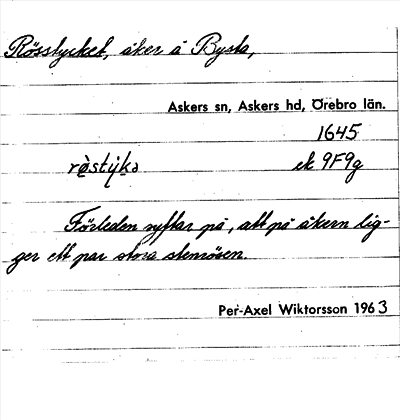 Rösstycket, åker å Bysta,
Askers sn, Askers hd, Örebro län.
1645
rö̀styka ek 9F9g
Förleden syftar på, att på åkern lig-
ger ett par stora stenrösen.
Per-Axel Wiktorsson 1963